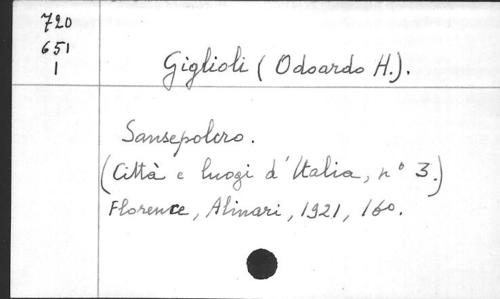 720
651
1
Giglioli (Odoardo H.).
Sansepolcro.
(Città e luogi d'Italia, nº 3.)
Florence, Alinari, 1921, 160.